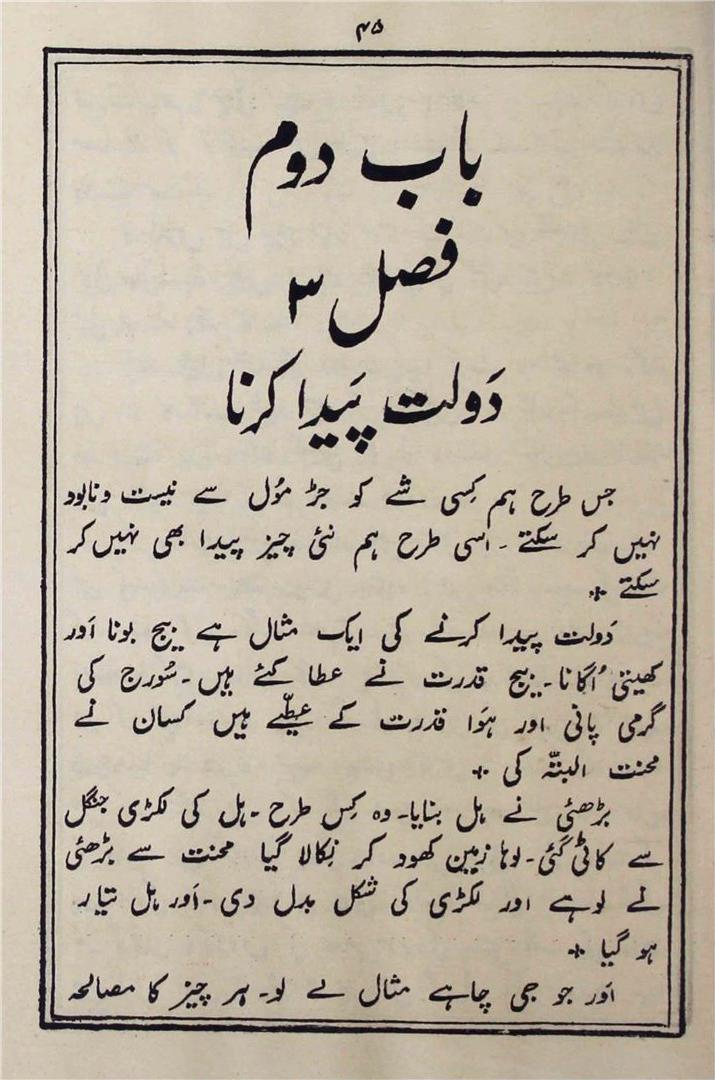 ۴۵
باب دوم
فصل ۳
دَولت پَیدا کرنا
جس طرح ہم کِسی شے کو جڑ مُول سے نیست و نابود
نہیں کر سکتے ۔ اسی طرح ہم نئی چیز پیدا بھی نہیں کر
سکتے *
دَولت پیدا کرنے کی ایک مثال ہے بیج بونا اَور
کھیتی اُگانا ۔ بیج قدرت نے عطا کئے ہیں ۔ سُورج کی
گرمی پانی اور ہَوا قدرت کے عطیّے ہیں کسان نے
محنت البتّہ کی *
بڑھئی نے ہل بنایا ۔ وہ کِس طرح ۔ ہل کی لکڑی جنگل
سے کاٹی گئی ۔ لوہا زمین کھود کر نِکالا گیا محنت سے بڑھئی
نے لوہے اور لکڑی کی شکل بدل دی ۔ اَور ہل تیار
ہو گیا *
اَور جو جی چاہے مثال لے لو ۔ ہر چیز کا مصالحہ